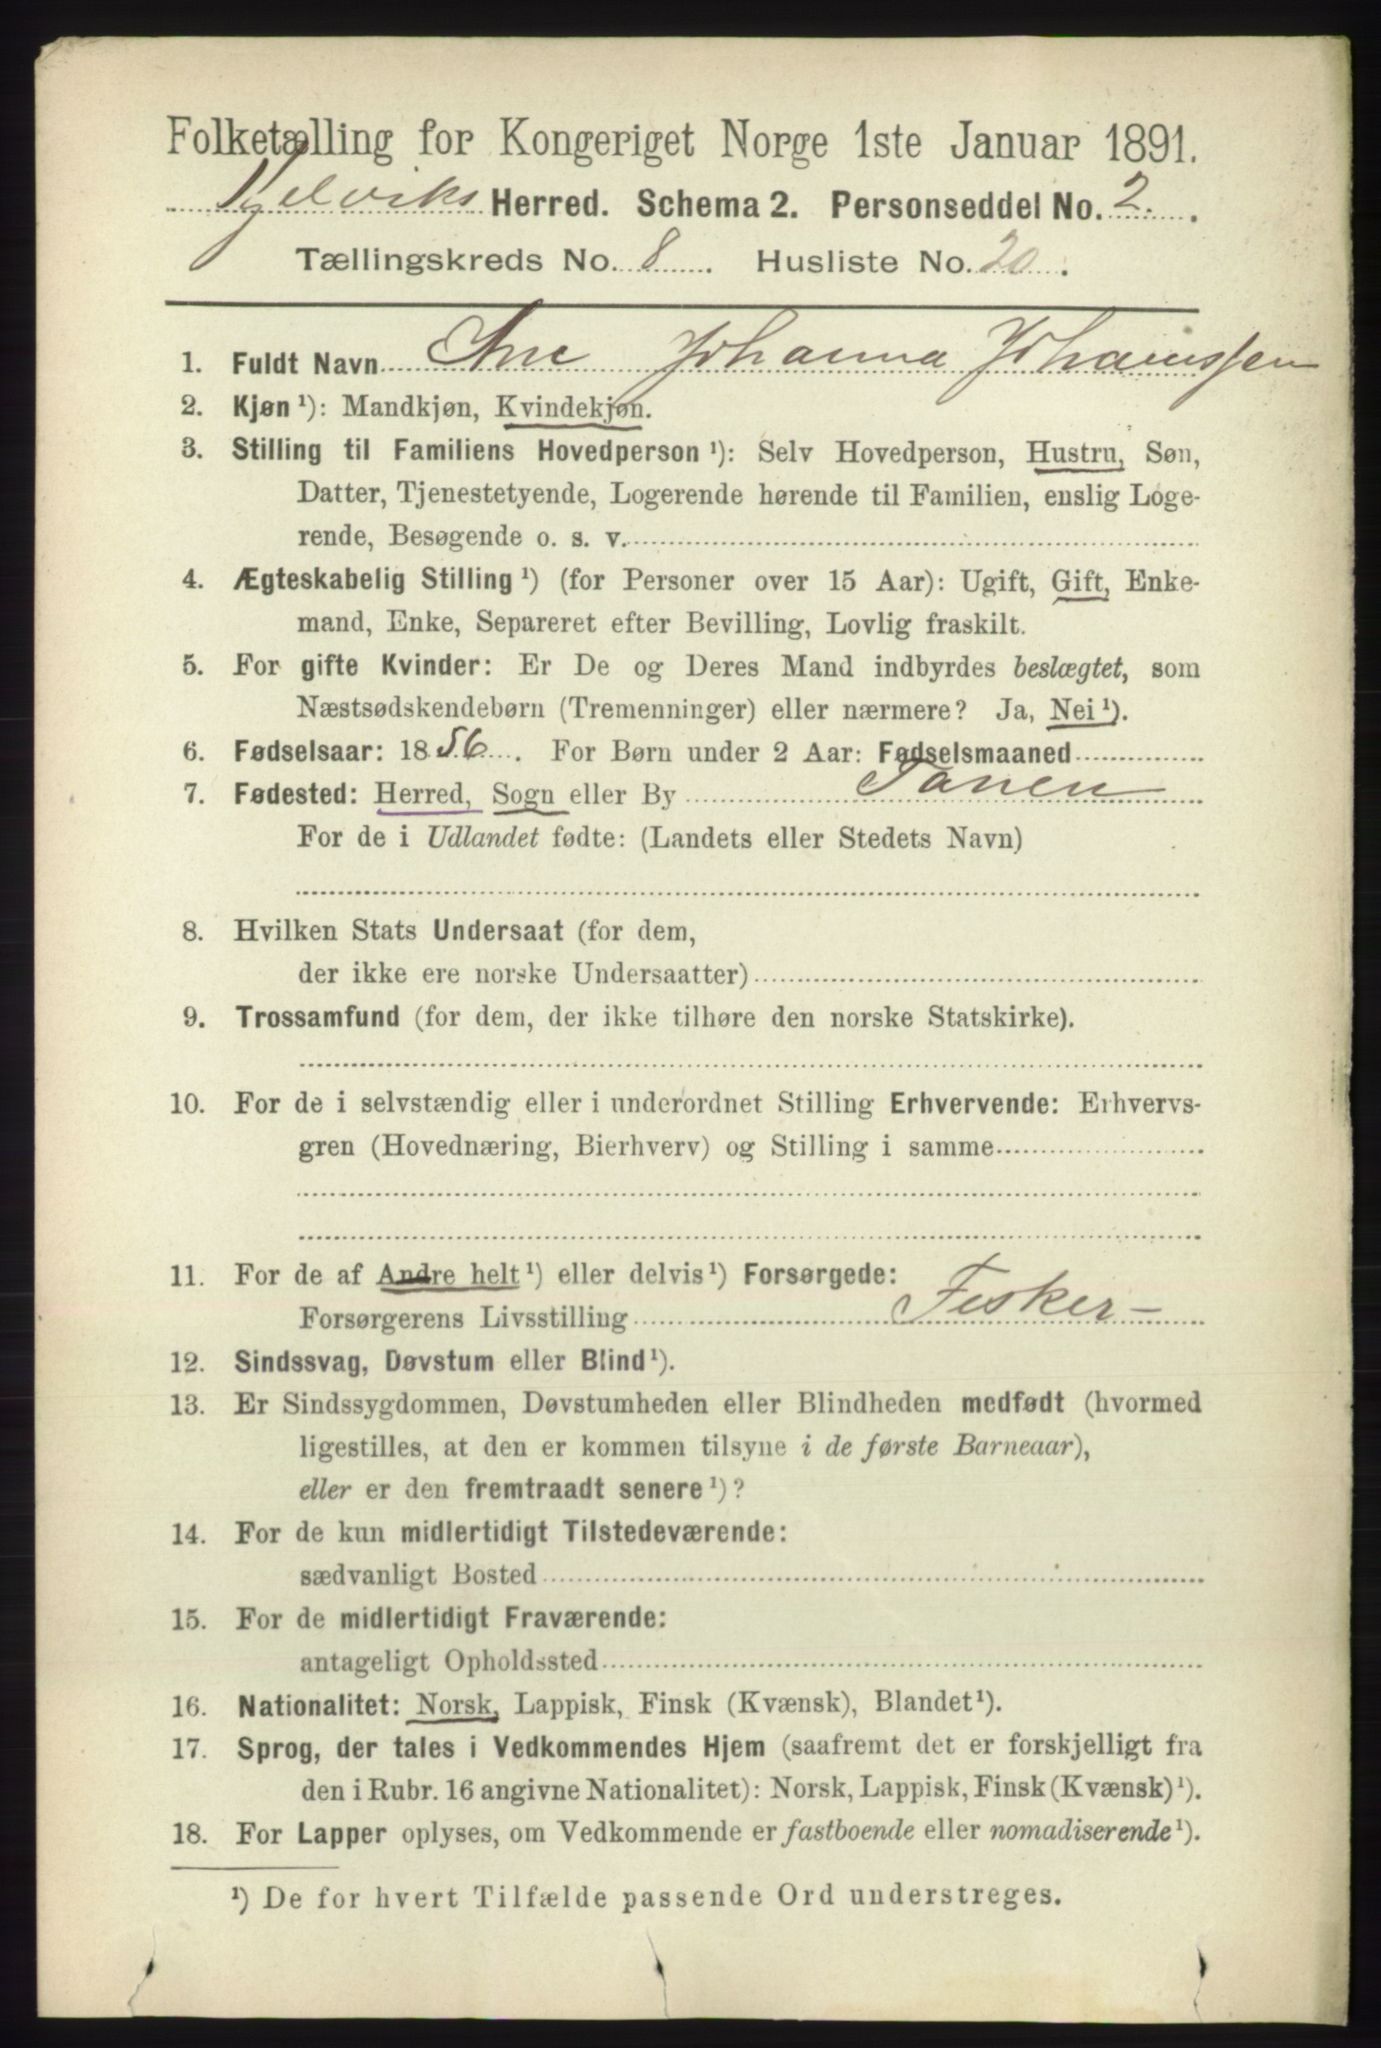 Folketælling for Kongeriget Norge 1ste Januar 1891.
Kjelviks Herred. Schema 2. Personseddel No. 2.
Tællingskreds No. 8. Husliste No. 20.
1. Fuldt Navn Ane Johanna Johanssen
2. Kjøn ¹): Mandkjøn, Kvindekjøn.
3. Stilling til Familiens Hovedperson ¹): Selv Hovedperson, Hustru, Søn,
Datter, Tjenestetyende, Logerende hørende til Familien, enslig Loge-
rende, Besøgende o. s. v.
4. Ægteskabelig Stilling ¹) (for Personer over 15 Aar): Ugift, Gift, Enke-
mand, Enke, Separeret efter Bevilling, Lovlig fraskilt.
5. For gifte Kvinder: Er De og Deres Mand indbyrdes beslægtet, som
Næstsødskendebørn (Tremenninger) eller nærmere? Ja, Nei ¹).
6. Fødselsaar: 1856. For Børn under 2 Aar: Fødselsmaaned
7. Fødested: Herred, Sogn eller By Tanen
For de i Udlandet fødte: (Landets eller Stedets Navn)
8. Hvilken Stats Undersaat (for dem,
der ikke ere norske Undersaatter)
9. Trossamfund (for dem, der ikke tilhøre den norske Statskirke).
10. For de i selvstændig eller i underordnet Stilling Erhvervende: Erhvervs-
gren (Hovednæring, Bierhverv) og Stilling i samme
11. For de af Andre helt ¹) eller delvis ¹) Forsørgede:
Forsørgerens Livsstilling Fisker –
12. Sindssvag, Døvstum eller Blind ¹).
13. Er Sindssygdommen, Døvstumheden eller Blindheden medfødt (hvormed
ligestilles, at den er kommen tilsyne i de første Barneaar),
eller er den fremtraadt senere ¹)?
14. For de kun midlertidigt Tilstedeværende:
sædvanligt Bosted
15. For de midlertidigt Fraværende:
antageligt Opholdssted
16. Nationalitet: Norsk, Lappisk, Finsk (Kvænsk), Blandet ¹).
17. Sprog, der tales i Vedkommendes Hjem (saafremt det er forskjelligt fra
den i Rubr. 16 angivne Nationalitet): Norsk, Lappisk, Finsk (Kvænsk) ¹).
18. For Lapper oplyses, om Vedkommende er fastboende eller nomadiserende ¹).
¹) De for hvert Tilfælde passende Ord understreges.